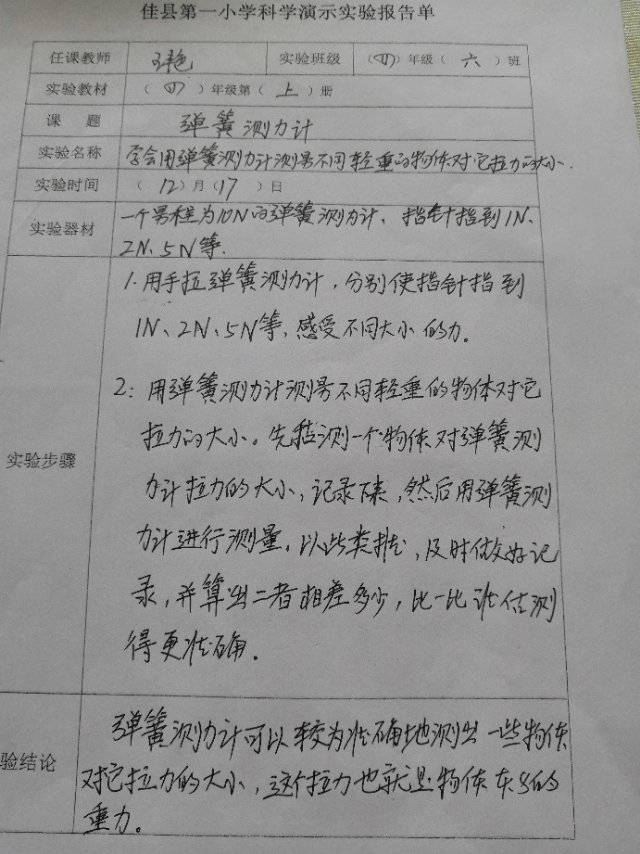 佳县第一小学科学演示实验报告单
任课教师 王艳 实验班级 （四）年级（六）班
实验教材 （四）年级第（上）册
课 题 弹簧测力计
实验名称 学会用弹簧测力计测量不同轻重的物体对它拉力的大小.
实验时间 （12）月（17）日
实验器材 一个量程为10N的弹簧测力计、指针指到1N、
2N、5N等.
1.用手拉弹簧测力计，分别使指针指到
1N、2N、5N等，感受不同大小的力。
2：用弹簧测力计测量不同轻重的物体对它
拉力的大小。先估测一个物体对弹簧测
实验步骤
力计拉力的大小，记录下来，然后用弹簧测
力计进行测量，以此类推，及时做好记
录，并算出二者相差多少，比一比谁估测
得更准确。
弹簧测力计可以较为准确地测出一些物体
验结论 对它拉力的大小，这个拉力也就是物体本身的
重力。